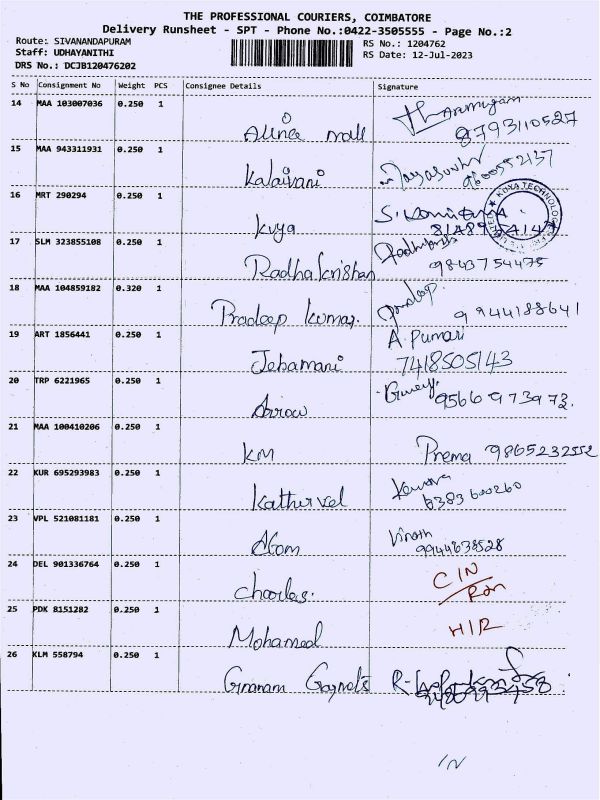 THE PROFESSIONAL COURIERS, COIMBATORE
Delivery Runsheet - SPT - Phone No.:0422-3505555 - Page No.:2
Route: SIVANANDAPURAM RS No.: 1204762
Staff: UDHAYANITHI RS Date: 12-Jul-2023
DRS No.: DCJB120476202
S No Consignment No Weight PCS Consignee Details Signature
14 MAA 103007036 0.250 1
8793110527
15 MAA 943311931 0.250 1
Kalaivani 9600552137
16 MRT 290294 0.250 1
Kvya
17 SLM 323855108 0.250 1
Radha krishan 9843754475
18 MAA 104859182 0.320 1
Pradeep kumar. 9944188641
19 ART 1856441 0.250 1 A. Pumari
Jebamani 7418505143
20 TRP 6221965 0.250 1
Arrow 9566973973.
21 MAA 100410206 0.250 1
KM Prema 9865232552
22 KUR 695293983 0.250 1
Kathirvel 6383600260
23 VPL 521081181 0.250 1 Vinoth
Atom 9944638528
24 DEL 901336764 0.250 1 C/N
Charles.
25 PDK 8151282 0.250 1
Mohamed H/R
26 KLM 558794 0.250 1
Gnanam
IN